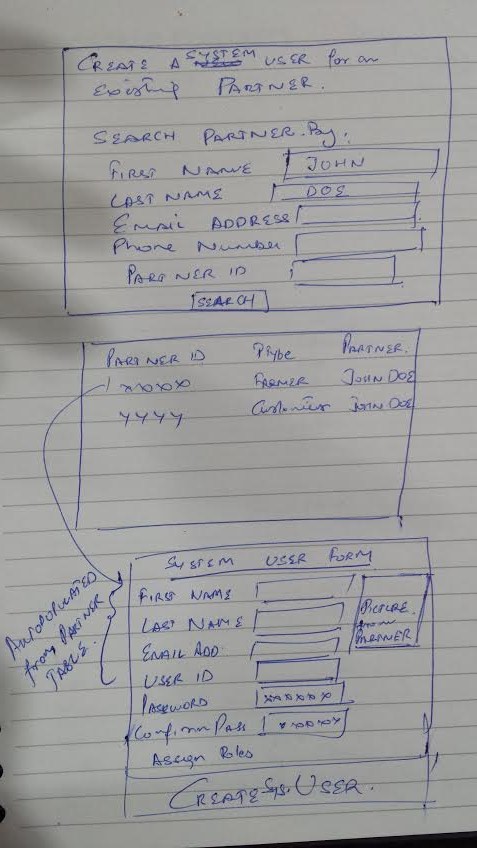 CREATE A SYSTEM USER for an
Existing PARTNER.
SEARCH PARTNER. By:
FIRST NAME JOHN
LAST NAME DOE
EMAIL ADDRESS
PHONE NUMBER
PARTNER ID
SEARCH
PARTNER ID Ptype PARTNER.
xxxxx FARMER JOHN DOE
YYYY Customer JOHN DOE
SYSTEM USER FORM
AUTOPOPULATED
from PARTNER
TABLE.
FIRST NAME
LAST NAME
EMAIL ADD:
USER ID
PASSWORD xxxxxx
Confirm Pass xxxxx
Assign Roles
PICTURE
from
PARTNER
CREATE Sys. USER.